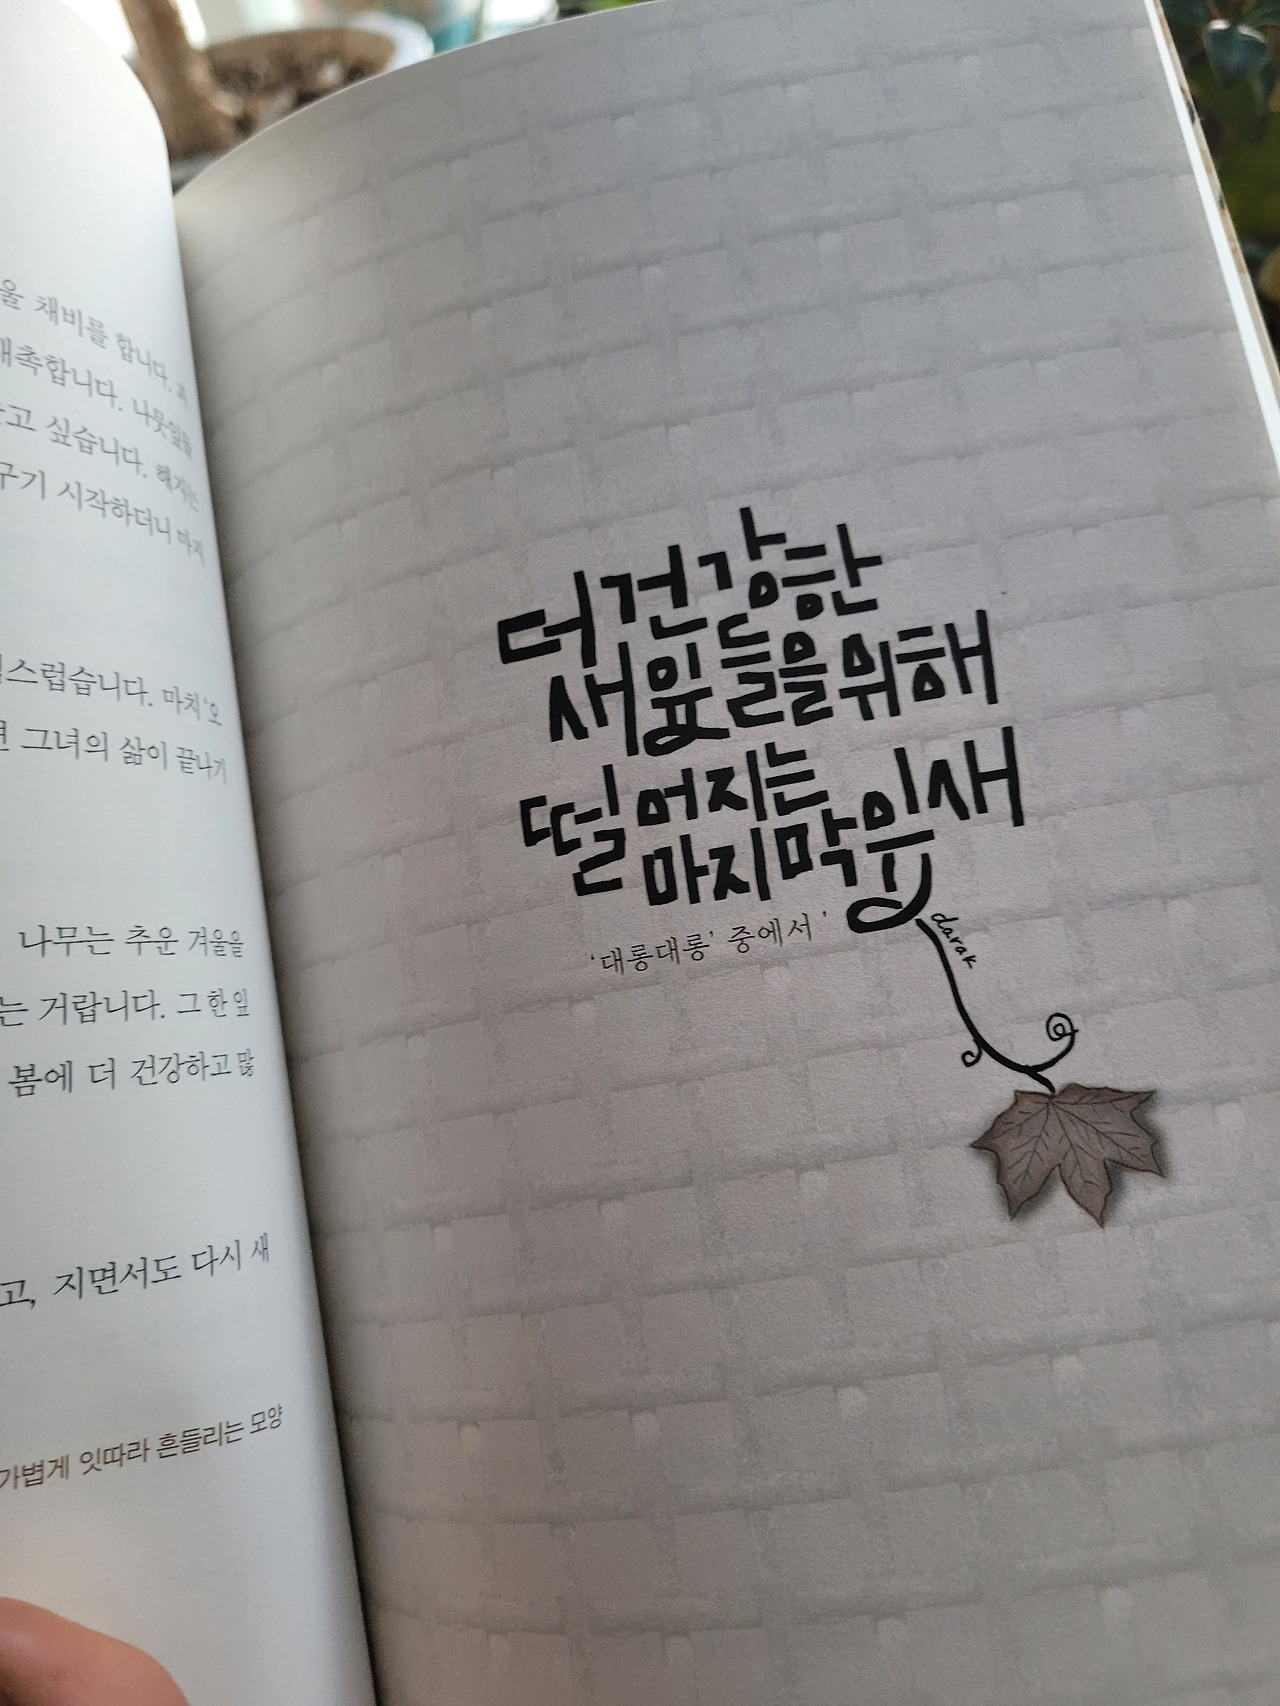 채비를 합니다.
재촉합니다. 나뭇잎들
싶습니다. 해지는
시작하더니 마치
스럽습니다. 마치 '오
그녀의 삶이 끝나기
나무는 추운 겨울을
는 거랍니다. 그 한 잎
봄에 더 건강하고 많
고, 지면서도 다시 새
가볍게 잇따라 흔들리는 모양
더 건강한
새잎들을 위해
떨어지는
마지막 잎새
'대롱대롱' 중에서
darak